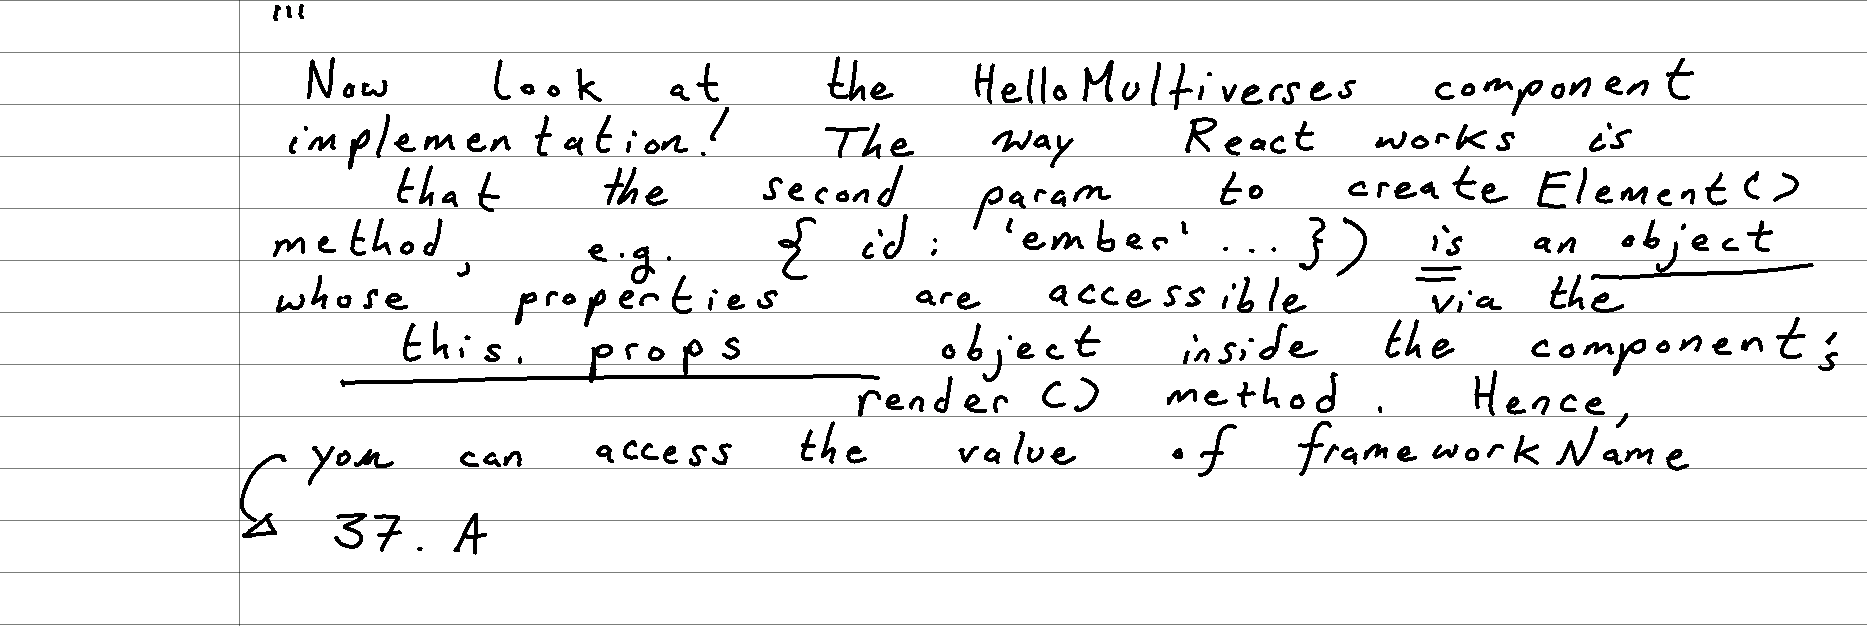 '''
Now look at the HelloMultiverses component
implementation! The way React works is
that the second param to createElement()
method, e.g. { id: 'ember' ... }) is an object
whose properties are accessible via the
this.props object inside the component's
render() method. Hence,
you can access the value of frameworkName
37. A